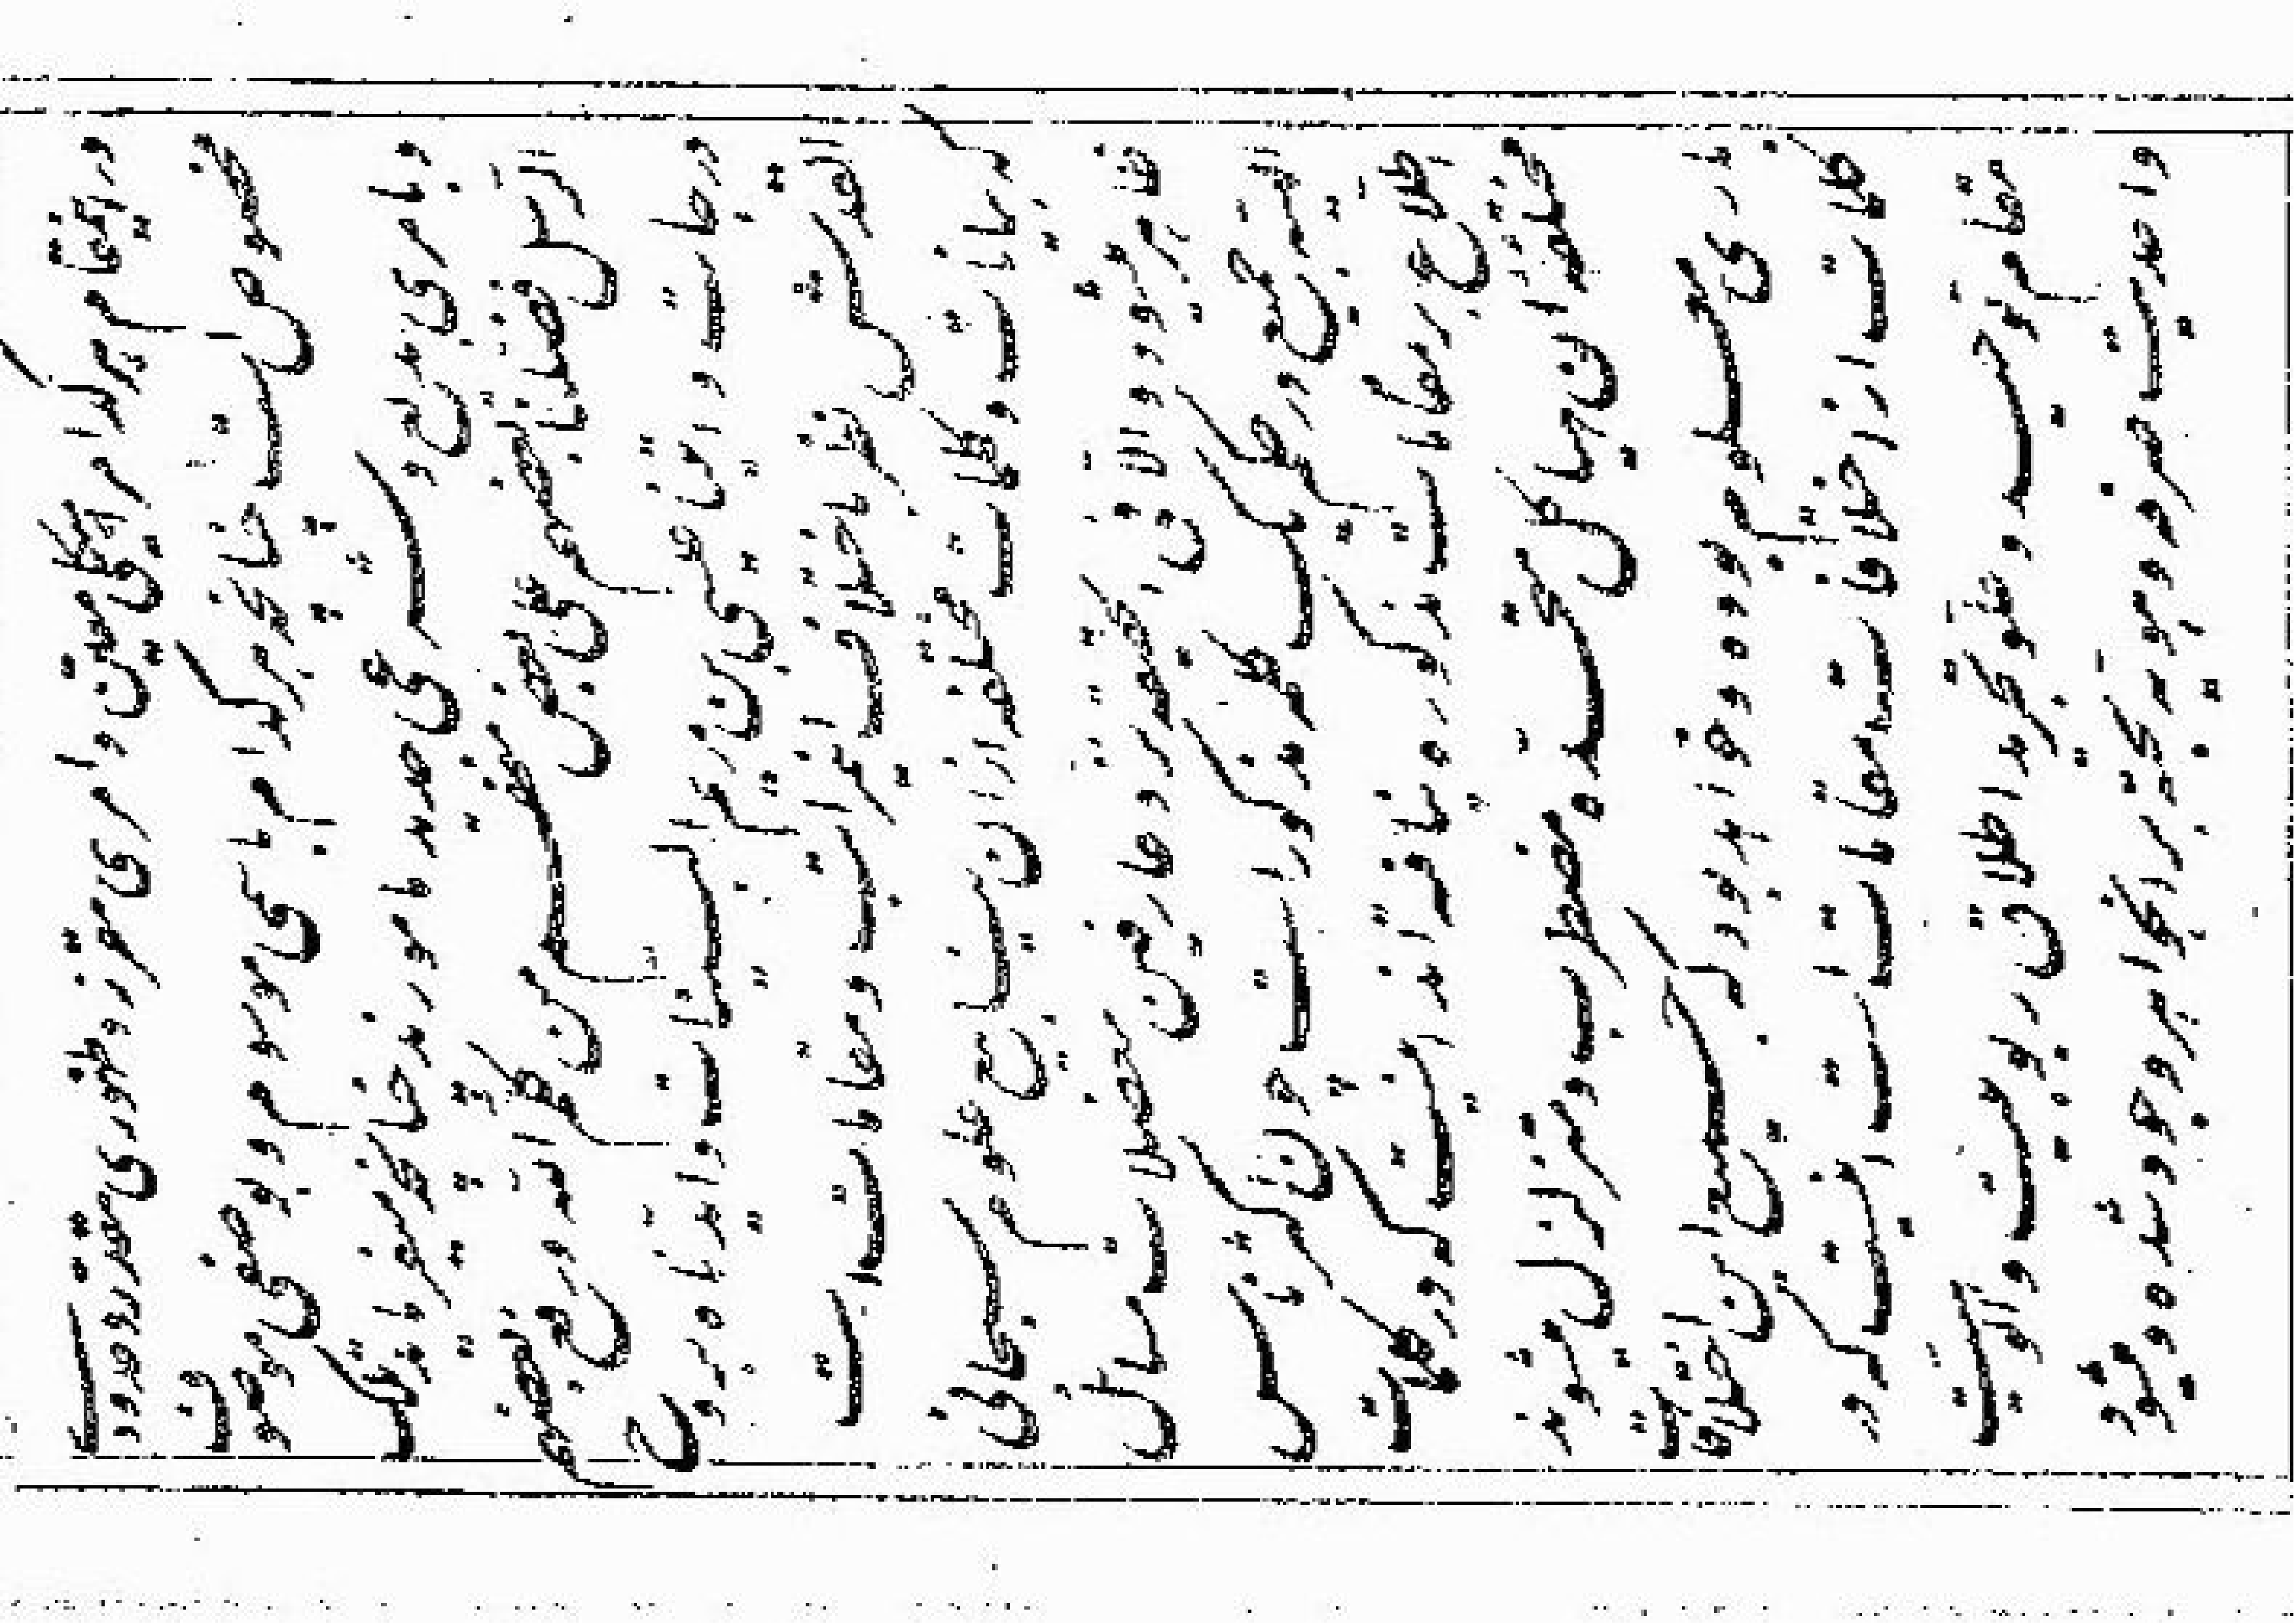 در اینمقام هر کدام را هیکلی معین و امری مقرر و ظهوری مقدر و حدودی
مخصوص است چنانچه هر کدام باسمی موسوم و بوصفی موصوف
و بامری بدیع و شرعی جدید مامورند چنانچه میفرماید تلک
الرسل فضلنا بعضهم علی بعض منهم من کلم الله و رفع بعضهم
درجات و اتینا عیسی بن مریم البینات و ایدناه بروح
القدس نظر باختلاف این مراتب و مقامات است
که بیانات و کلمات مختلفه از ان ینابیع علوم سبحانی
ظاهر میشود و الا فی الحقیقه نزد عارفین معضلات مسائل
الهیه جمیع در حکم یک کلمه مذکور است چون اکثر ناس
اطلاع بر مقامات مذکوره نیافته اند اینست که در کلمات
مختلفه ان هیاکل متحده مضطرب و متزلزل میشوند
باری معلوم بوده و خواهد بود که جمیع این اختلافات
کلمات از اختلافات مقامات است اینست که در
مقام توحید و علو تجرید اطلاق ربوبیت و الوهیت
و احدیت صرفه و هویه بحته بر ان جواهر وجود شده و میشود